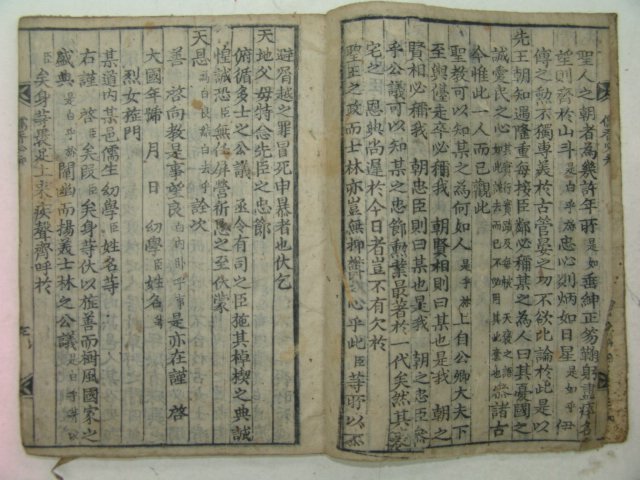 聖人之朝者為幾許年所是如垂紳正笏鞠躬盡瘁名
望則齊於山斗是白乎㫆忠心則炳如日星是如乎伊
傅之勳不獨專美於古管晏之功不欲此論於此是以
先王朝知遇隆重每接臣鄰必稱某之為人曰其憂國之
誠愛民之心諸古
今惟此一人而已觀此
聖教可以知某之為何如人是乎㫆上自公卿大夫下
至輿儓走卒必稱我 朝賢相則曰某也是我 朝之
賢相必稱我 朝忠臣則曰某也是我 朝之忠臣參
乎公議可以知某之忠節勳業最著於一代矣然其表
宅之 恩典尚遲於今日者豈不有欠於
聖王之政而士林亦豈無抑鬱之心乎此臣等所以不
避屑越之罪冒死申暴者也伏乞
天地父母特念先臣之忠節
俯循多士之公議 亟令有司之臣施其棹楔之典誠
惶誠恐臣無任屏營祈懇之至伏蒙
天恩為白良結白去乎詮次
善 啓向教是事望良白內臥乎事是亦在謹 啓
大國年號 月 日 幼學臣姓名等
烈女旌門
某道內某邑儒生幼學臣姓名等
右謹 啓臣矣段臣矣身等伏以旌善而樹風國家之
盛典是白乎㫆闡幽而揚義士林之公議是白乎所
臣矣身等裹足上來疾聲齊呼於